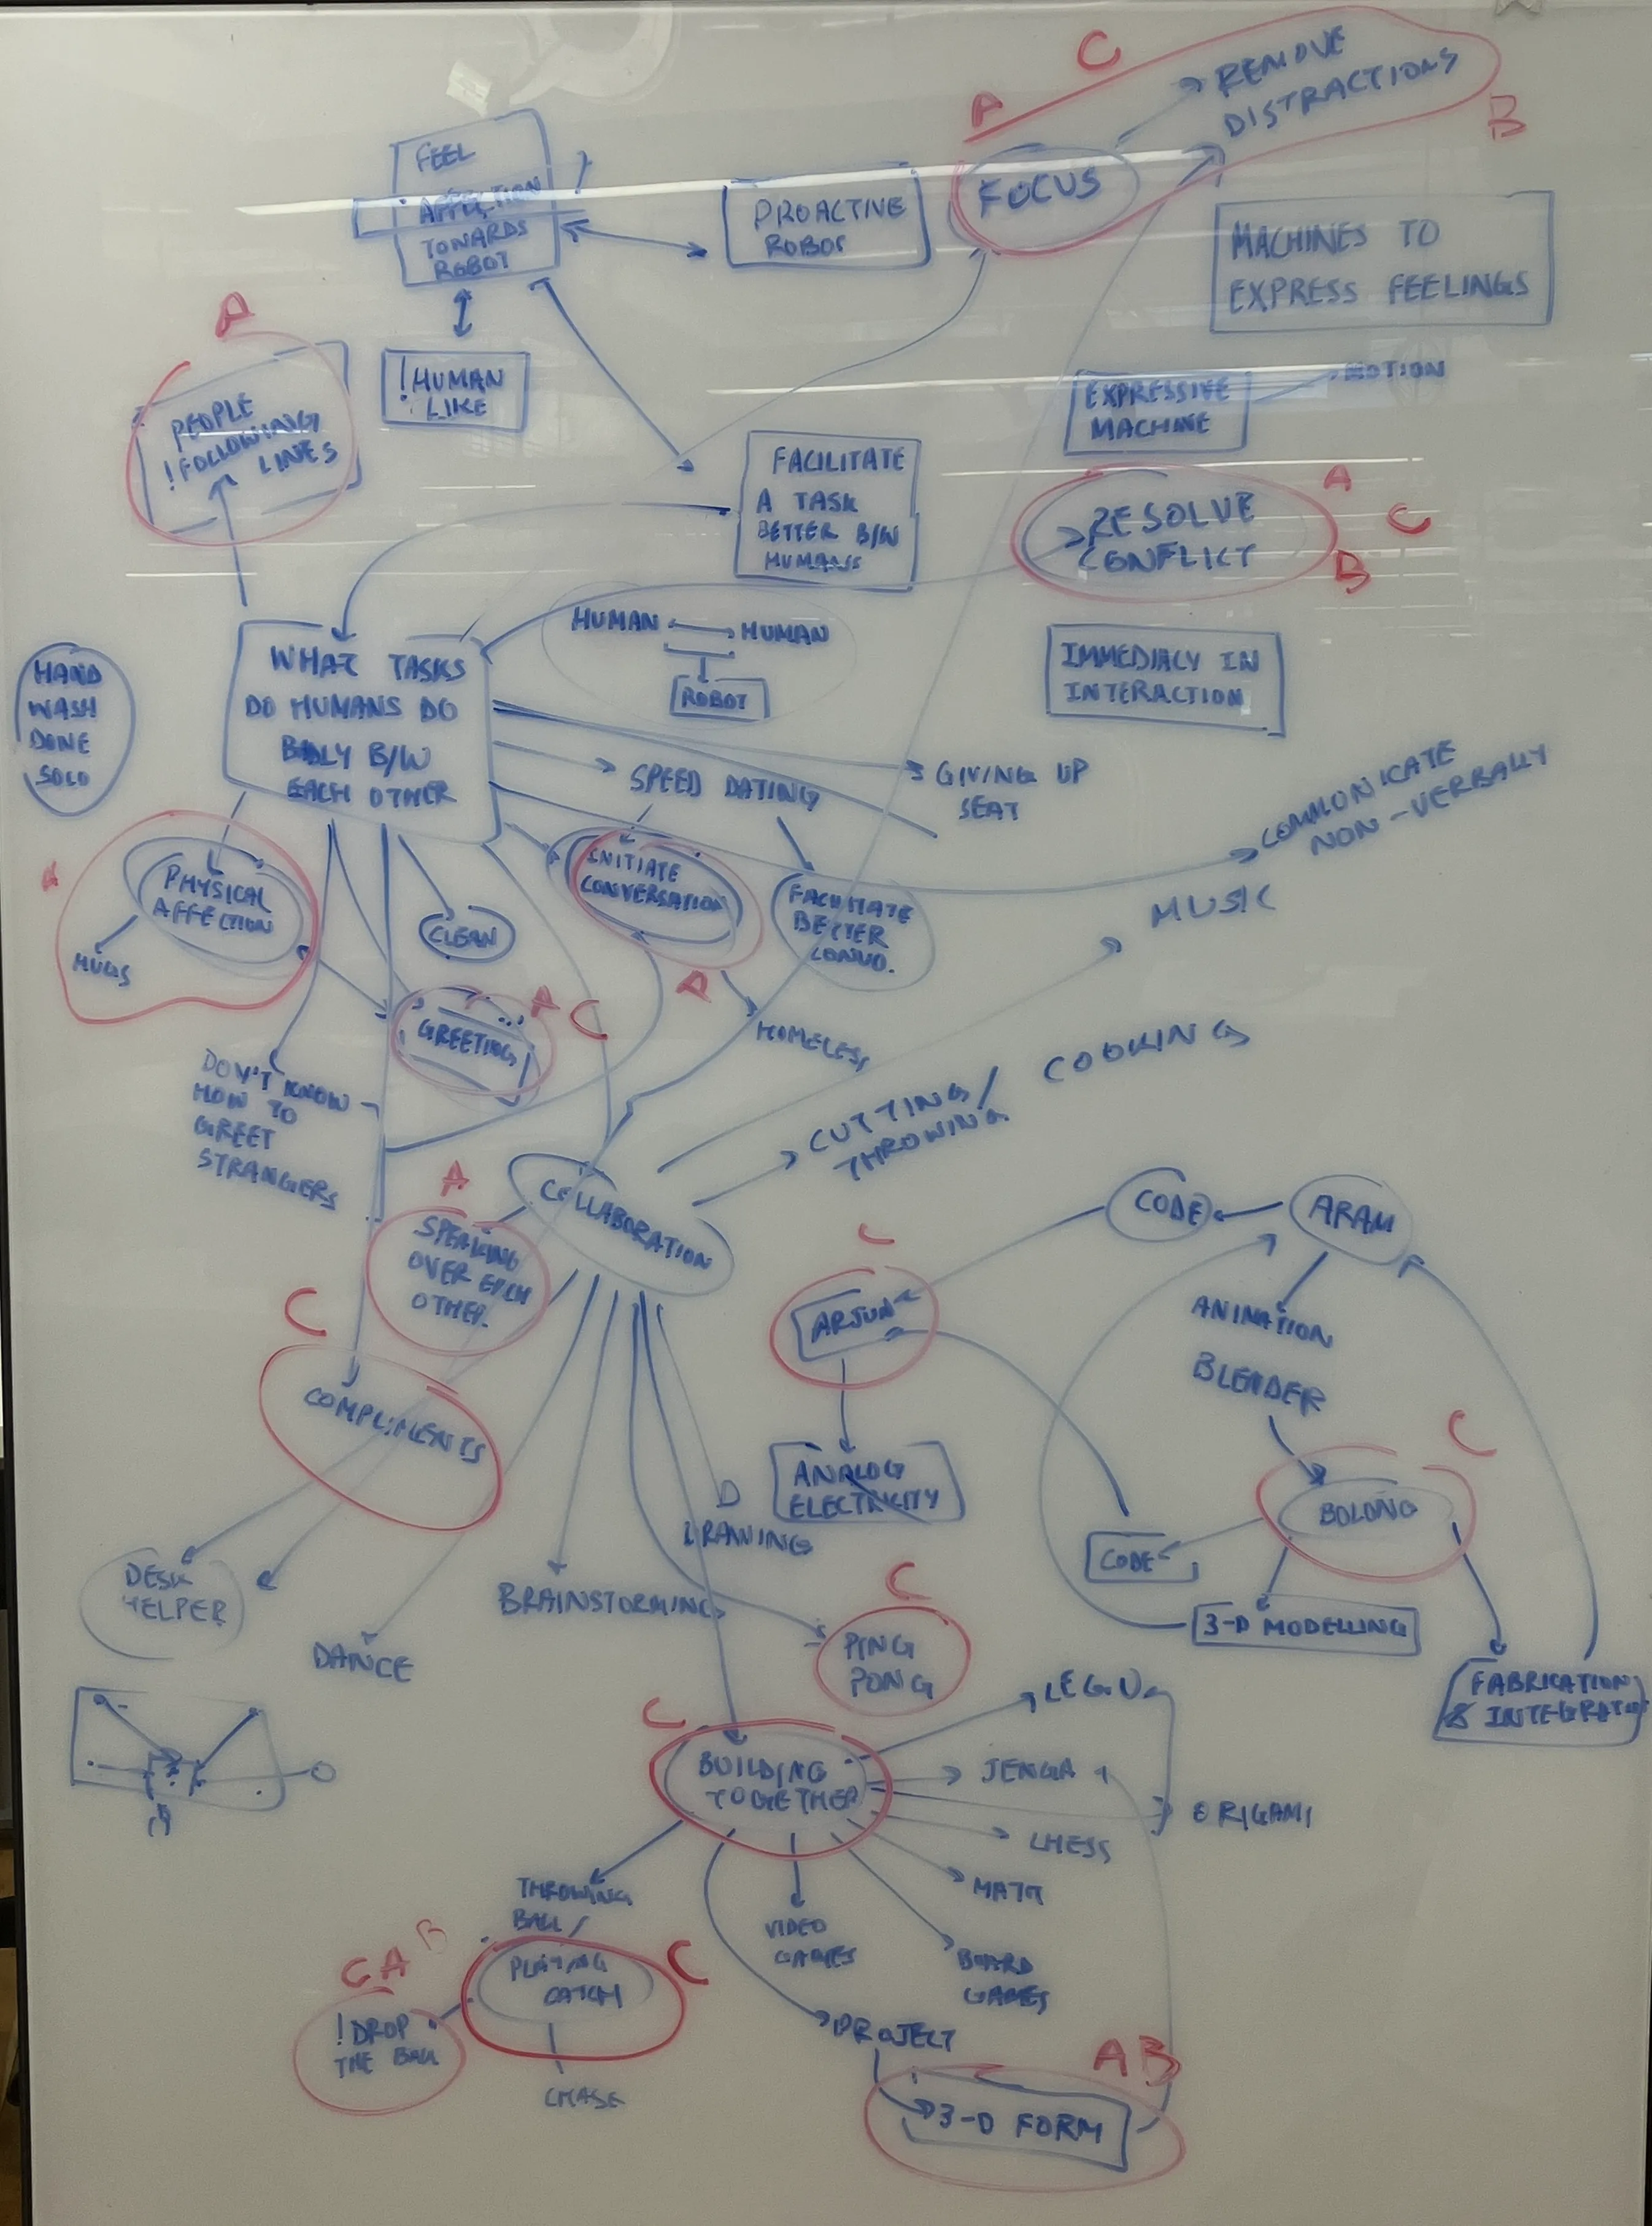 C
A
REMOVE
DISTRACTIONS
B
FEEL
AFFECTION
TOWARDS
ROBOT
PROACTIVE
ROBOT
FOCUS
MACHINES TO
EXPRESS FEELINGS
A
!HUMAN
LIKE
EXPRESSIVE
MACHINE
MOTION
PEOPLE
!FOLLOWING
LINES
FACILITATE
A TASK
BETTER B/W
HUMANS
RESOLVE
CONFLICT
A
C
B
HUMAN
HUMAN
ROBOT
IMMEDIACY IN
INTERACTION
HAND
WASH
DONE
SOLO
WHAT TASKS
DO HUMANS DO
BADLY B/W
EACH OTHER
SPEED DATING
GIVING UP
SEAT
COMMUNICATE
NON-VERBALLY
A
PHYSICAL
AFFECTION
HUGS
CLEAN
INITIATE
CONVERSATION
A
FACILITATE
BETTER
CONVO.
MUSIC
GREETING
A C
HOMELESS
DON'T KNOW
HOW TO
GREET
STRANGERS
CUTTING/
THROWING
COOKING
A
COLLABORATION
SPEAKING
OVER EACH
OTHER.
CODE
ARAM
C
ARJUN
ANIMATION
BLENDER
C
COMPLIMENTS
ANALOG
ELECTRICITY
C
BOLONG
DRAWING
CODE
DESK
HELPER
BRAINSTORMING
3-D MODELLING
DANCE
C
PING
PONG
FABRICATION
& INTEGRATION
C
BUILDING
TOGETHER
LEGO
JENGA
ORIGAMI
CHESS
MATH
THROWING
BALL/
PLAYING
CATCH
C
VIDEO
GAMES
BOARD
GAMES
C A B
!DROP
THE BALL
CHASE
PROJECT
A B
3-D FORM